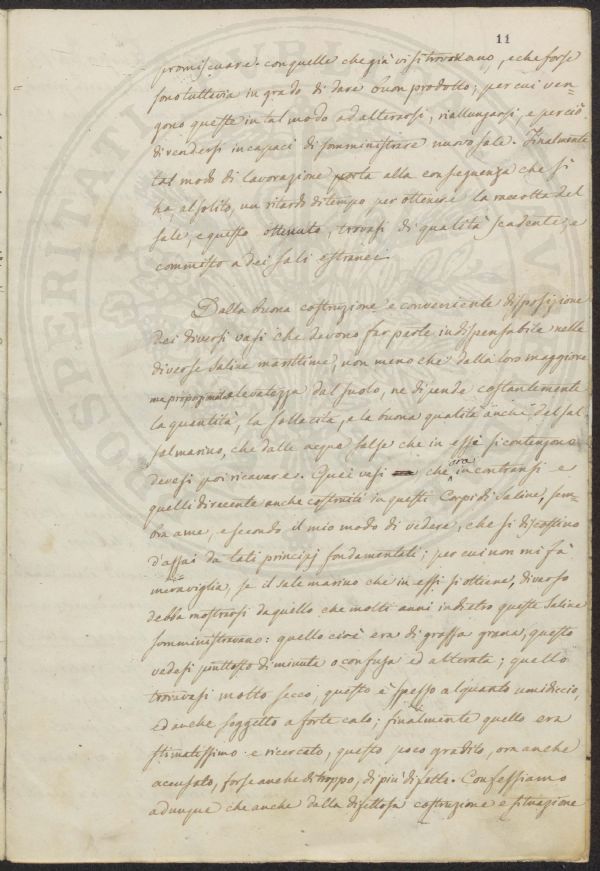 11
promiscuare con quelle che già vi si trovavano, e che forse
sono tuttavia in grado di dare buon prodotto; per cui ven=
gono queste in tal modo ad alterarsi, riallungarsi, e perciò
di rendersi incapaci di somministrare nuovo sale. Finalmente
tal modo di lavorazione porta alla conseguenza che si
ha, al solito, un ritardo di tempo per ottenere la raccolta del
sale, e questo ottenuto, trovasi di qualità scadente, e
commisto a dei sali estranei.
Dalla buona costruzione e conveniente disposizione
dei diversi vasi che devono far parte indispensabile nelle
diverse saline marittime, non meno che dalla loro maggiore
ma proporzionata elevatezza dal suolo, ne dipende costantemente
la quantità, la sollecità, e la buona qualità anche del sal
salmarino, che dalle acque salse che in essi si contengono
devesi poi ricavare. Quei vasi che ora incontransi e
quelli di recente anche costruiti in questi Corpi di Saline, sem=
bra a me, e secondo il mio modo di vedere, che si discostino
d'assai da tali principj fondamentali; per cui non mi fà
meraviglia, se il sale marino che in essi si ottiene, diverso
debba mostrarsi da quello che molti anni indietro queste Saline
somministravano: quello cioè era di grossa grana, questo
vedesi piuttosto di minuta o confusa ed alterata; quello
trovavasi molto secco, questo è spesso alquanto umidiccio,
ed anche soggetto a forte calo; finalmente quello era
stimatissimo e ricercato, questo poco gradito, ora anche
accusato, forse anche di troppo, di più difetti. Confessiamo
adunque che anche dalla difettosa costruzione e situazione